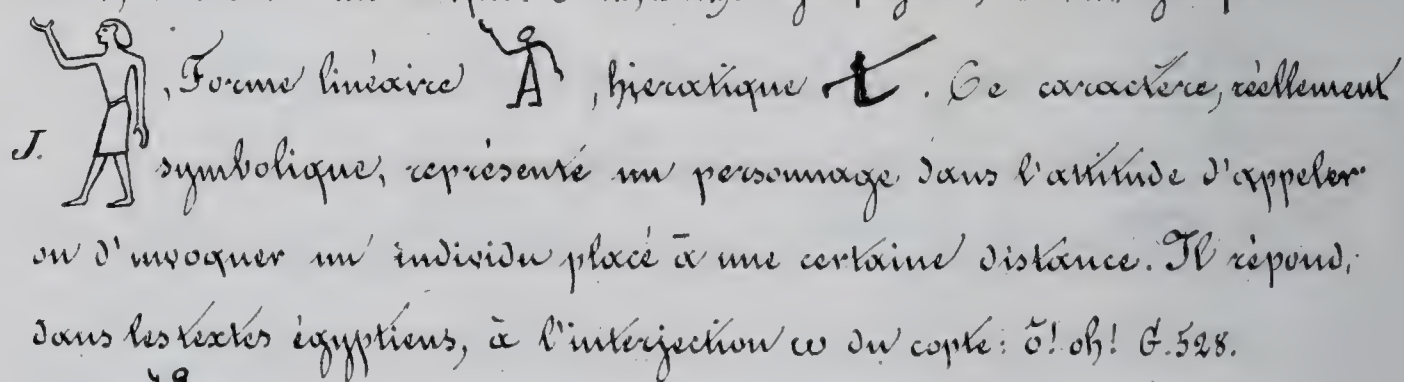 , Forme linéaire , hiératique . Ce caractère, réellement
J. symbolique, représente un personnage dans l'attitude d'appeler
ou d'invoquer un individu placé à une certaine distance. Il répond,
dans les textes égyptiens, à l'interjection ω du copte: ô! oh! G. 528.